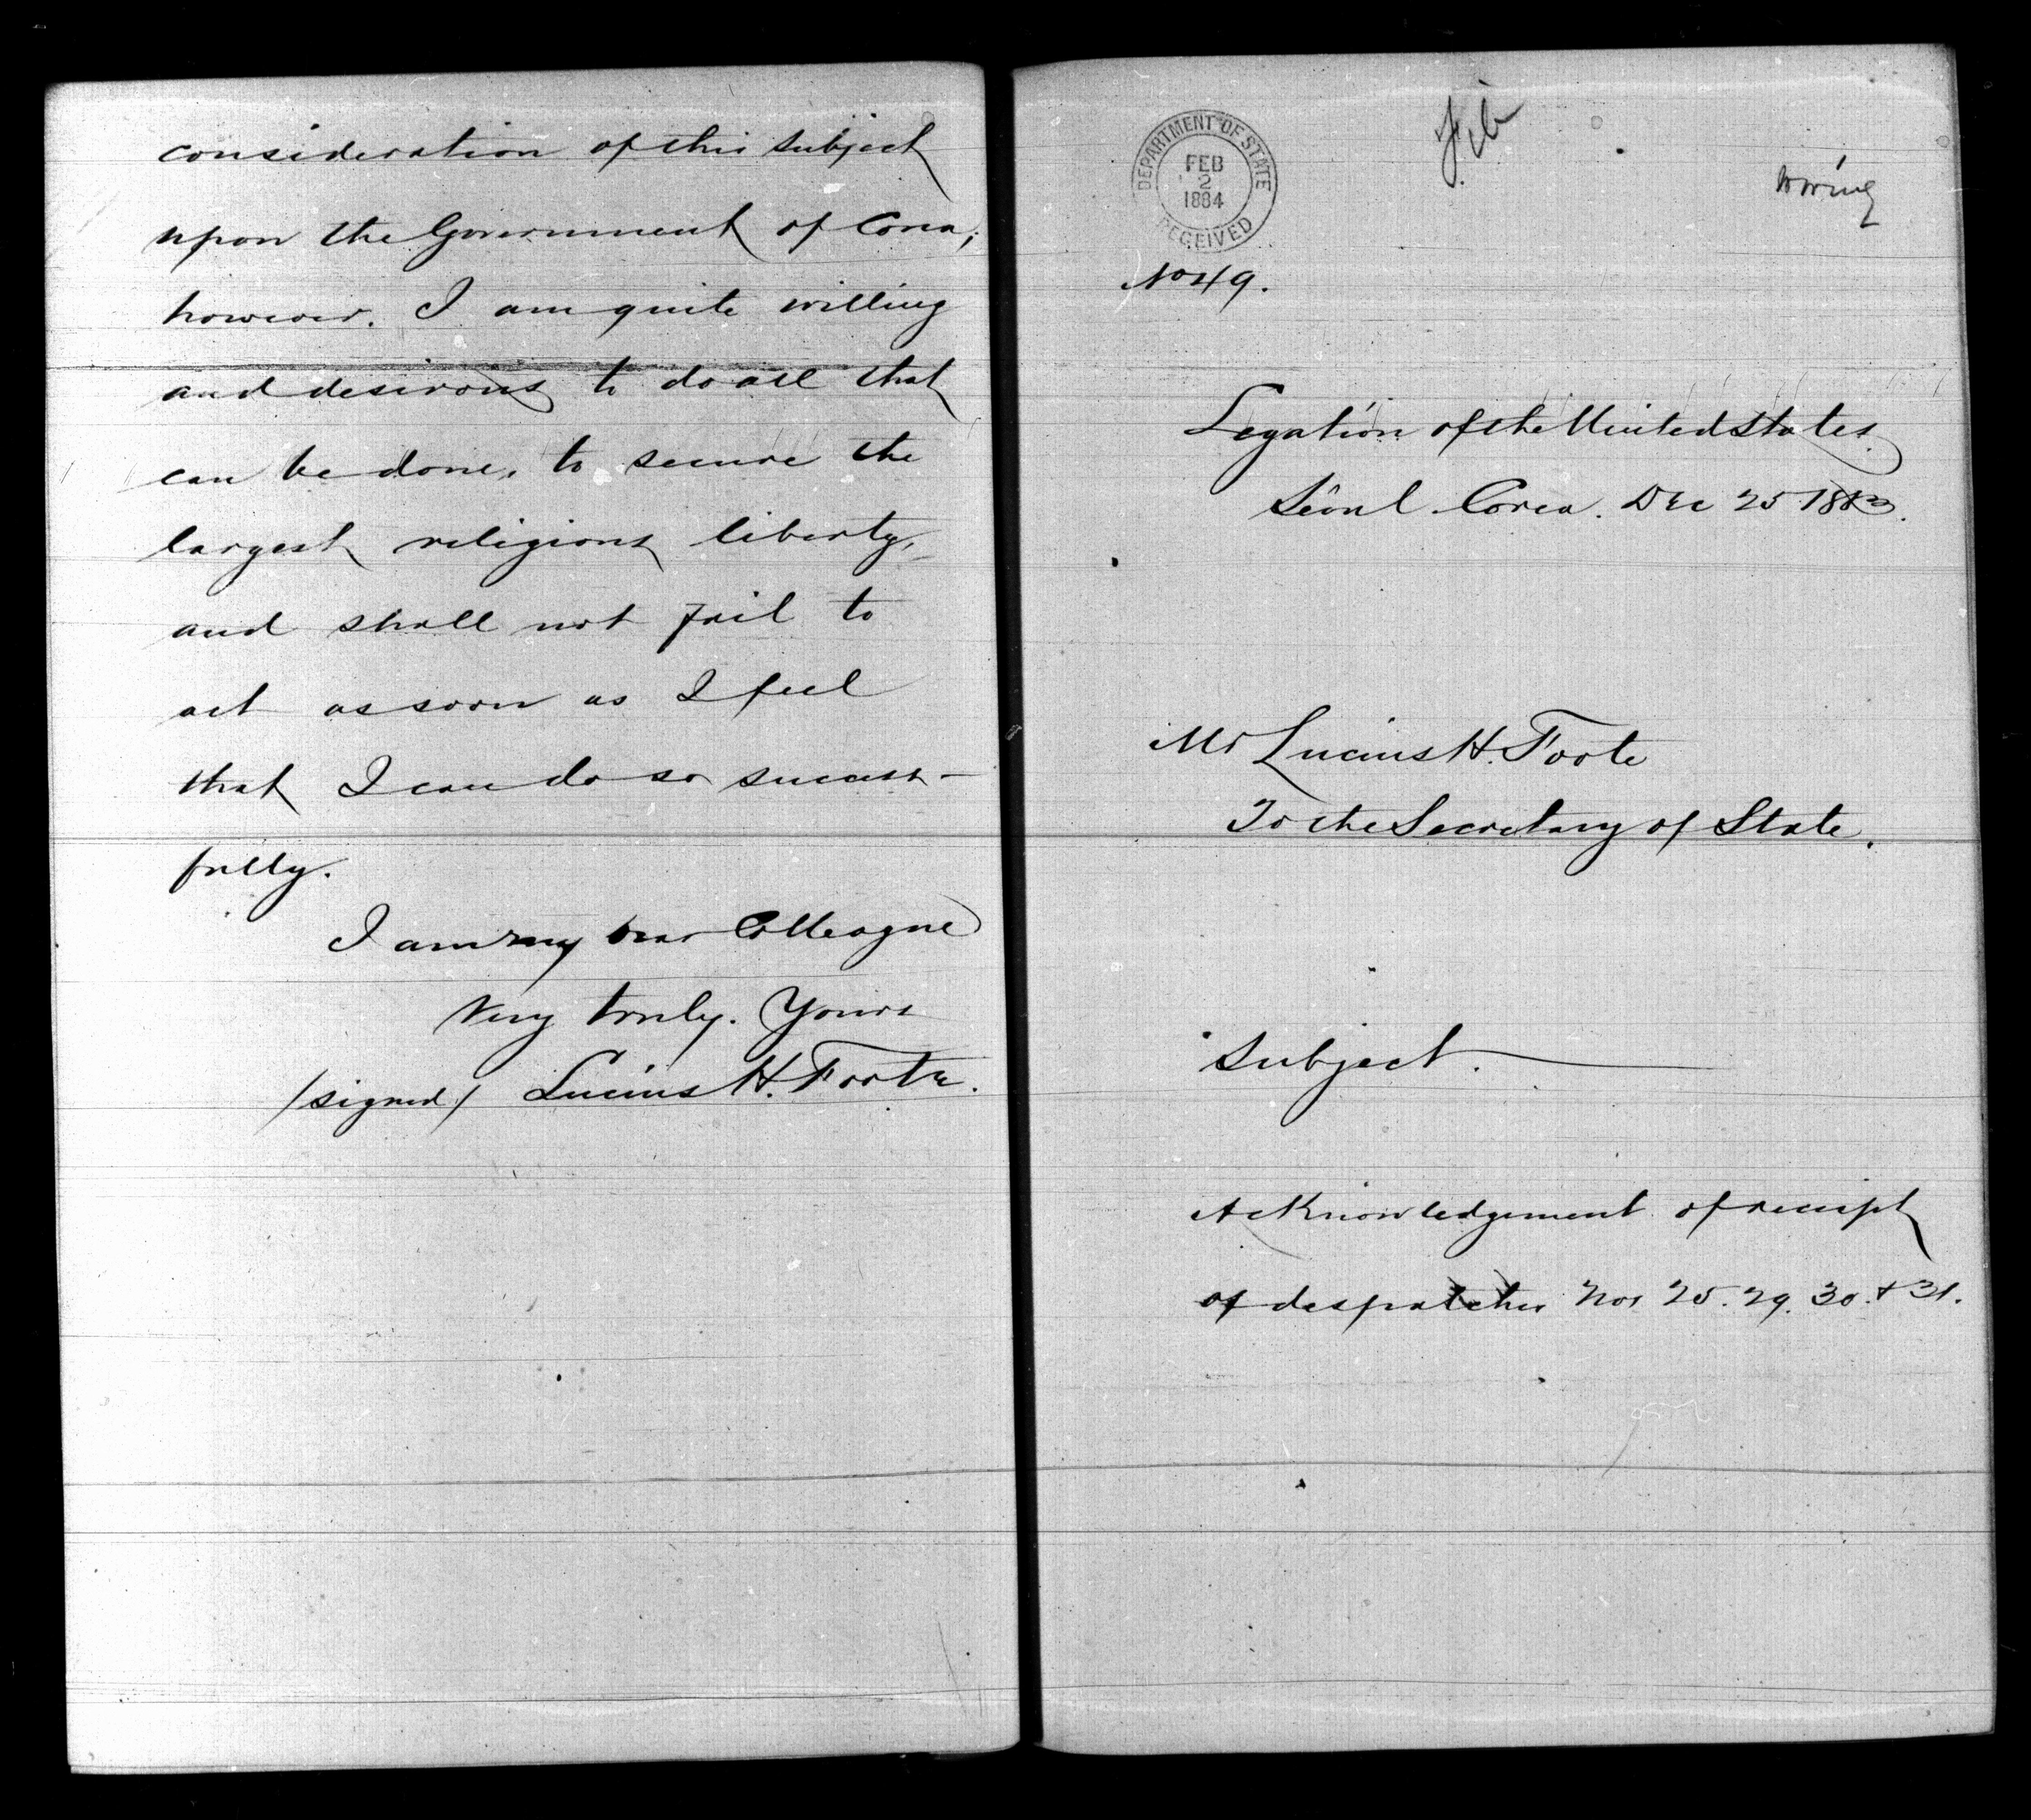 consideration of this subject
upon the Government of Corea;
however. I am quite willing
and desirous to do all that
can be done, to secure the
largest religious liberty,
and shall not fail to
act as soon as I feel
that I can do so success-
fully.
I am my dear Colleague
Very truly. Yours
/signed/ Lucius H. Foote.
DEPARTMENT OF STATE
FEB
2
1884
RECEIVED
No 49.
Legation of the United States
Sëoul Corea. Dec 25 1883.
Mr Lucius H. Foote
To the Secretary of State.
Subject.
Acknowledgement of receipt
of despatches Nos 25. 29. 30. + 31.